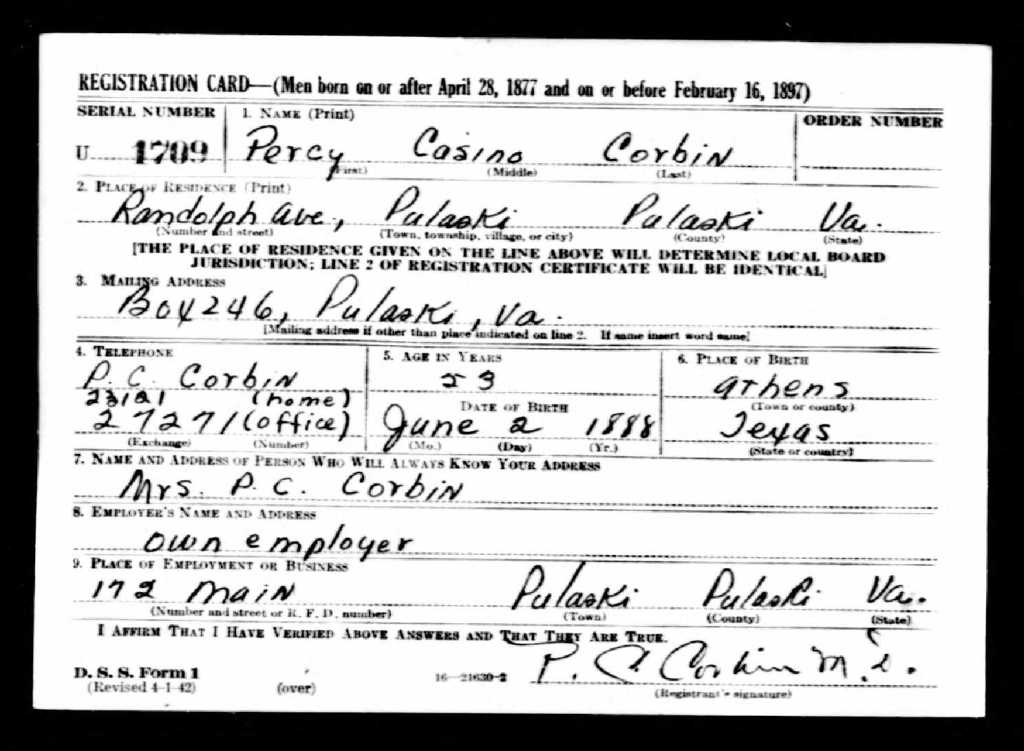 REGISTRATION CARD—(Men born on or after April 28, 1877 and on or before February 16, 1897)
SERIAL NUMBER 1. NAME (Print) ORDER NUMBER
U 1709 Percy Casino Corbin
(First) (Middle) (Last)
2. PLACE OF RESIDENCE (Print)
Randolph Ave, Pulaski Pulaski Va.
(Number and street) (Town, township, village, or city) (County) (State)
[THE PLACE OF RESIDENCE GIVEN ON THE LINE ABOVE WILL DETERMINE LOCAL BOARD
JURISDICTION; LINE 2 OF REGISTRATION CERTIFICATE WILL BE IDENTICAL]
3. MAILING ADDRESS
Box 246, Pulaski, Va.
[Mailing address if other than place indicated on line 2. If same insert word same]
4. TELEPHONE 5. AGE IN YEARS 6. PLACE OF BIRTH
P. C. Corbin 53 Athens
23121 (home) DATE OF BIRTH (Town or county)
27271 (office) June 2 1888 Texas
(Exchange) (Number) (Mo.) (Day) (Yr.) (State or country)
7. NAME AND ADDRESS OF PERSON WHO WILL ALWAYS KNOW YOUR ADDRESS
Mrs. P. C. Corbin
8. EMPLOYER'S NAME AND ADDRESS
own employer
9. PLACE OF EMPLOYMENT OR BUSINESS
172 Main Pulaski Pulaski Va.
(Number and street or R. F. D. number) (Town) (County) (State)
I AFFIRM THAT I HAVE VERIFIED ABOVE ANSWERS AND THAT THEY ARE TRUE.
P. C. Corbin M.D.
D. S. S. Form 1
(Revised 4-1-42) (over) 16—21630-2 (Registrant's signature)